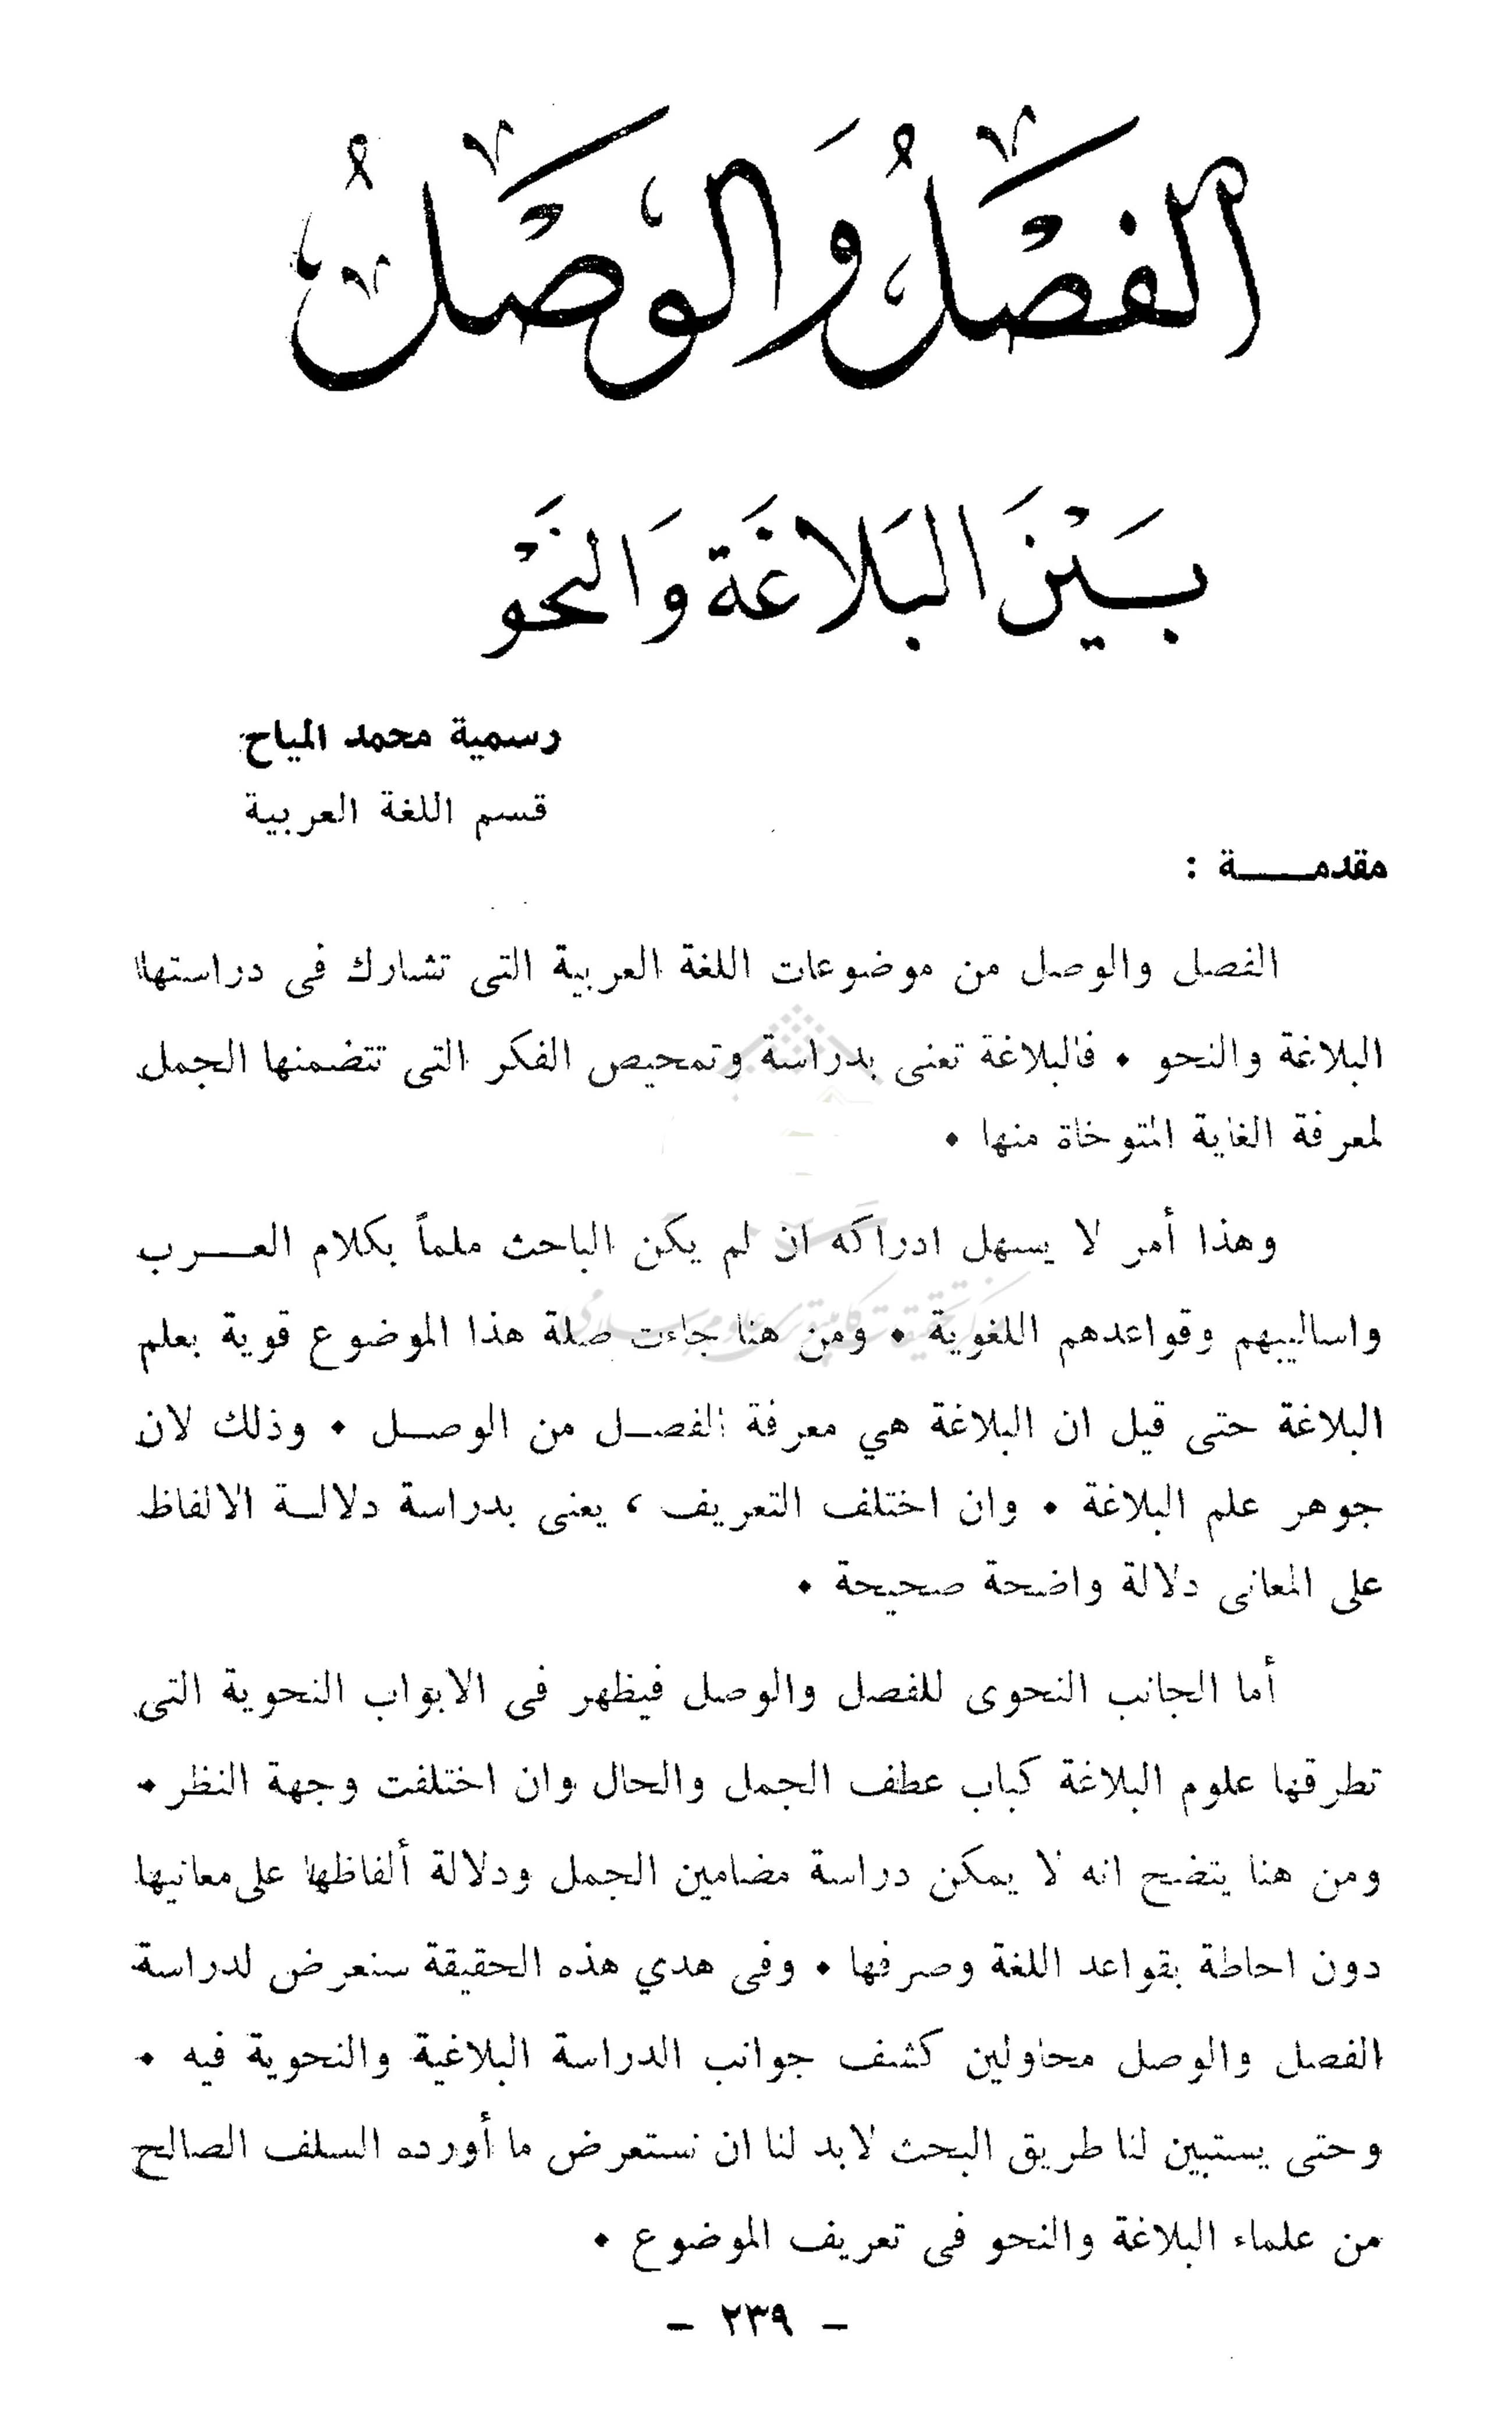 الفصل والوصل
بين البلاغة والنحو
رسمية محمد المياح
قسم اللغة العربية
مقدمـــة :
الفصل والوصل من موضوعات اللغة العربية التى تشارك فى دراستها
البلاغة والنحو ٠ فالبلاغة تعنى بدراسة وتمحيص الفكر التى تتضمنها الجمل
لمعرفة الغاية المتوخاة منها ٠
وهذا أمر لا يسهل ادراكه ان لم يكن الباحث ملماً بكلام العـــرب
واساليبهم وقواعدهم اللغوية ٠ ومن هنا جاءت صلة هذا الموضوع قوية بعلم
البلاغة حتى قيل ان البلاغة هي معرفة الفصــل من الوصــل ٠ وذلك لان
جوهر علم البلاغة ٠ وان اختلف التعريف ، يعنى بدراسة دلالــة الالفاظ
على المعانى دلالة واضحة صحيحة ٠
أما الجانب النحوى للفصل والوصل فيظهر فى الابواب النحوية التى
تطرقها علوم البلاغة كباب عطف الجمل والحال وان اختلفت وجهة النظر ٠
ومن هنا يتضح انه لا يمكن دراسة مضامين الجمل ودلالة ألفاظها على معانيها
دون احاطة بقواعد اللغة وصرفها ٠ وفى هدي هذه الحقيقة سنعرض لدراسة
الفصل والوصل محاولين كشف جوانب الدراسة البلاغية والنحوية فيه ٠
وحتى يستبين لنا طريق البحث لابد لنا ان نستعرض ما أورده السلف الصالح
من علماء البلاغة والنحو فى تعريف الموضوع ٠
– ٢٣٩ –